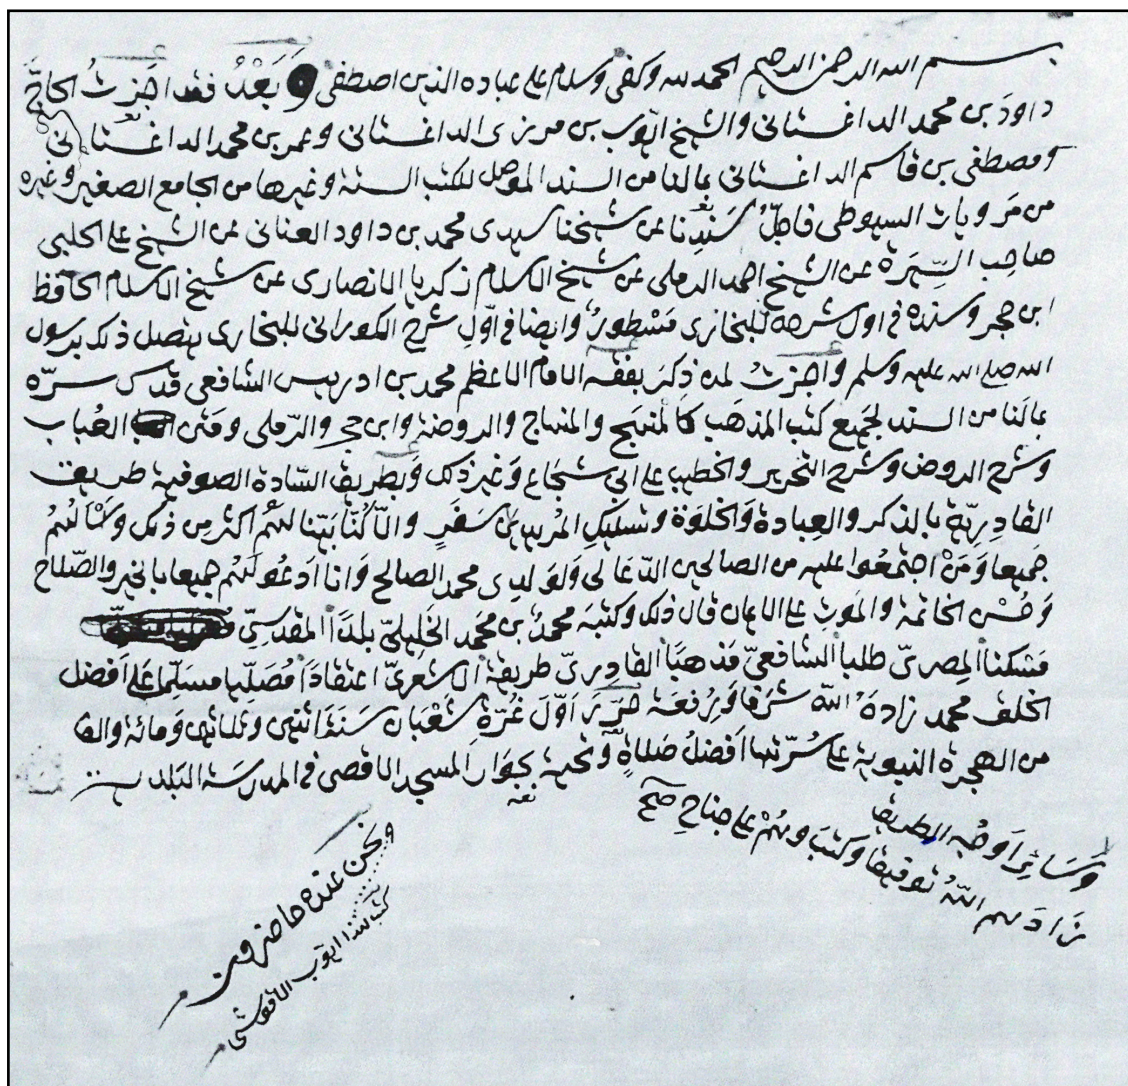 بسم الله الرحمن الرحيم الحمد لله وكفى وسلام على عباده الذين اصطفى وَبَعْدُ فقد اجزتُ الحاجّ
داود بن محمد الداغستانى والشيخ ايّوب بن الداغستانى وعمر بن محمد الداغستانى
ومصطفى بن قاسم الداغستانى بمالنا من السند الموصل للكتب الستة وغيرها من الجامع الصغير وغيره
من مَرويات السيوطى فاجلّ سَنَدِنا عن شيخنا سيدى محمد بن داود العنانى عن الشيخ على الحلبى
صاحب السِّيرَة عن الشيخ احمد الرملى عن شيخ الاسلام زكريا الانصارى عن شيخ الاسلام الحافظ
ابن حجر وسنده فى اول شرحه للبخارى مَسْطورٌ وايضا فى اوّل شرح الكورانى للبخارى يتصل ذلك برسول
الله صلى الله عليه وسلم واجزتُ لمن ذُكِرَ بفقه الامام الاعظم محمد بن ادريس الشافعى قدس سرّه
بمالنا من السند لجميع كتب المذهب كالمنهج والمنهاج والروضة وابن حجر والرّملى ومَتْن العُباب
وشرح الروض وشرح التحرير والخطيب على ابى شجاع وَغير ذلك وَبطريق السّادة الصوفية طريق
القادِريّة بالذكر والعِبادة وَالخلوة وتسليكِ المُريدين سَفَرٍ والّا كُنّا بَيّنا لَهُم اكثر من ذلك وَسْألهُمُ
جميعا وَمَنْ اجتمعُوا عليه من الصالحين الدّعا لى وَلوَلدى محمد الصالح وَانا اَدعُو لهُم جميعا بالخير والصّلاح
وَحُسْن الخاتمة والمَوت على الايمان قال ذلك وكتبَه محمدُ بن محمد الخليلىّ بلدًا المقدسى
مَسْكنا المِصرىّ طلبا الشافعىّ مَذهبًا القادرىّ طريقة الاشعرىّ اعتقادًا مُصَلّيا مسلّما على افضل
الخلف محمد زادَهُ الله شَرَفا وَرِفعَة حُرّرَ اَوّلَ غُرّة شَعْبَان سَنَة اثنتى وَثلاثين وَمائة والف
من الهجرة النبوية على مُشَرّفها اَفضلُ صَلاةٍ وَتحية بجوَار المسجد الاقصى فى المدرسَة البَلدية
وَسَائر اَوضه الطريق
زادَهم اللّهُ توفيقا وكتبَ وَهُمْ على جناحِ صح
ونحن عنده حاضرون